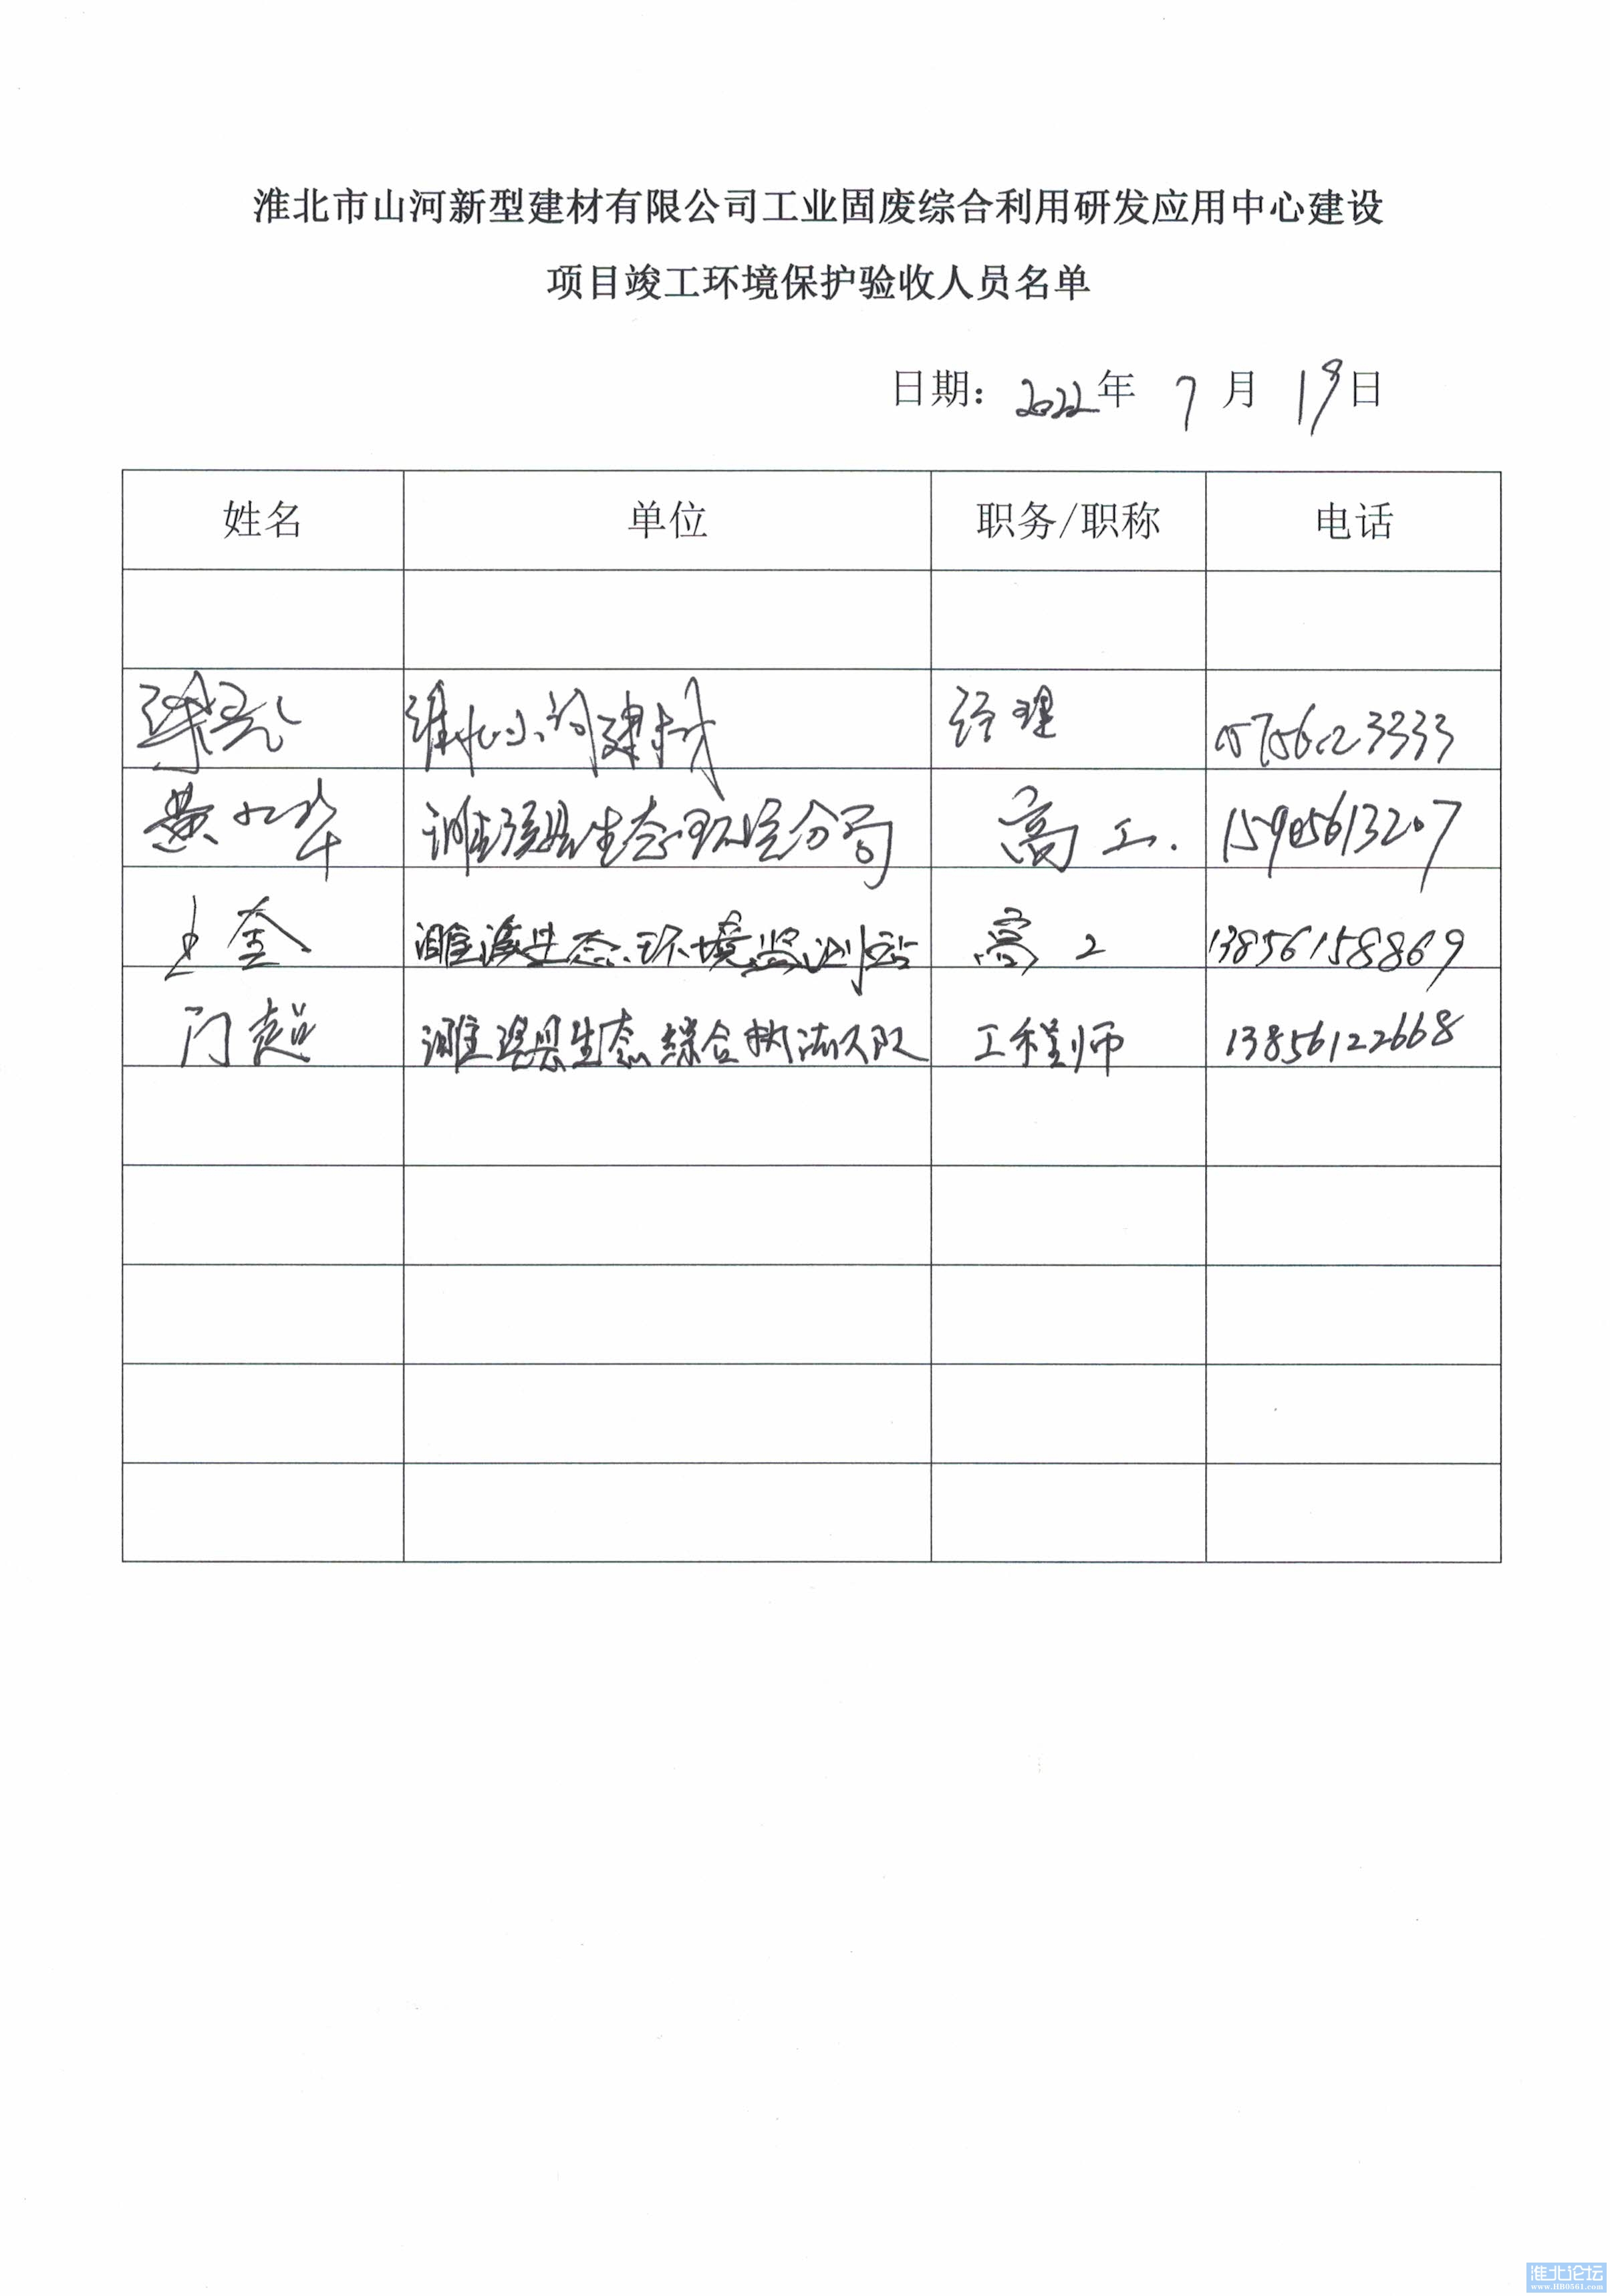 淮北市山河新型建材有限公司工业固废综合利用研发应用中心建设
项目竣工环境保护验收人员名单
日期: 2022年 7 月 19日
姓名 单位 职务/职称 电话
淮北山河建材 经理
黄 濉溪县生态环境分局 高工. 15905613207
濉溪生态环境监测站 高工 13856158869
门超 濉溪县生态综合执法大队 工程师 13856122668
淮北论坛
www.HB0561.com